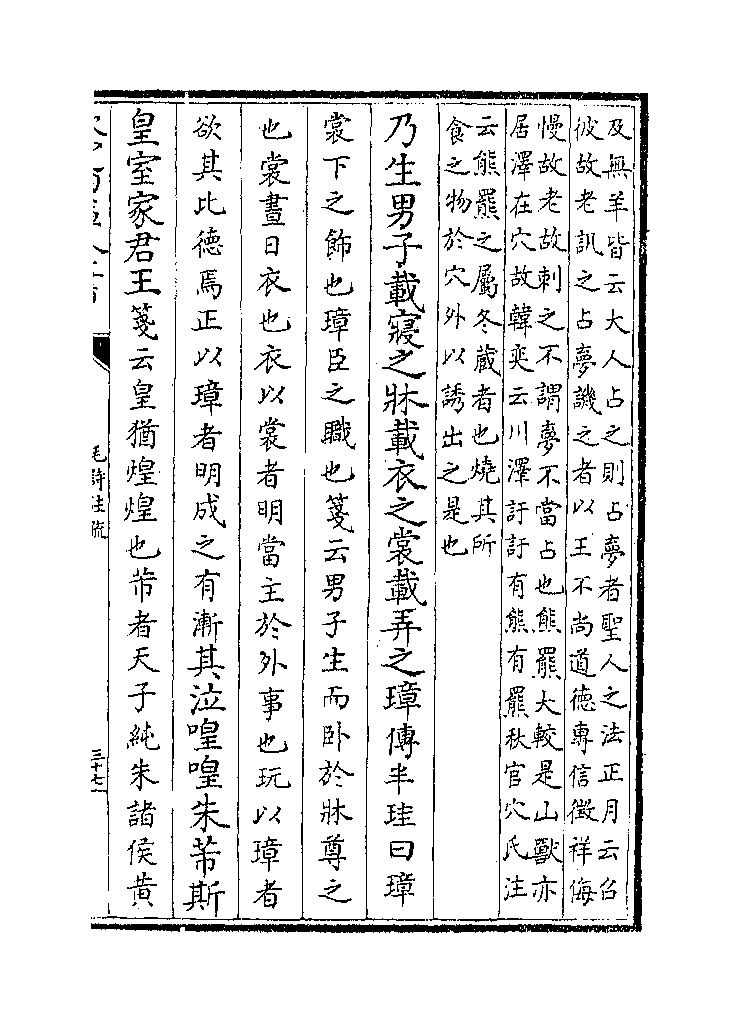 及無羊皆云大人占之則占夢者聖人之法正月云召
彼故老訊之占夢譏之者以王不尚道德專信徵祥侮
慢故老故刺之不謂夢不當占也熊羆大較是山獸亦
居澤在穴故韓奕云川澤訏訏有熊有羆秋官穴氏注
云熊羆之屬冬蔵者也燒其所
食之物於穴外以誘出之是也
乃生男子載寢之牀載衣之裳載弄之璋傳半珪曰璋
裳下之飾也璋臣之職也箋云男子生而卧於牀尊之
也裳晝日衣也衣以裳者明當主於外事也玩以璋者
欲其比德焉正以璋者明成之有漸其泣喤喤朱芾斯
皇室家君王箋云皇猶煌煌也芾者天子純朱諸侯黄
毛詩注疏
三十七